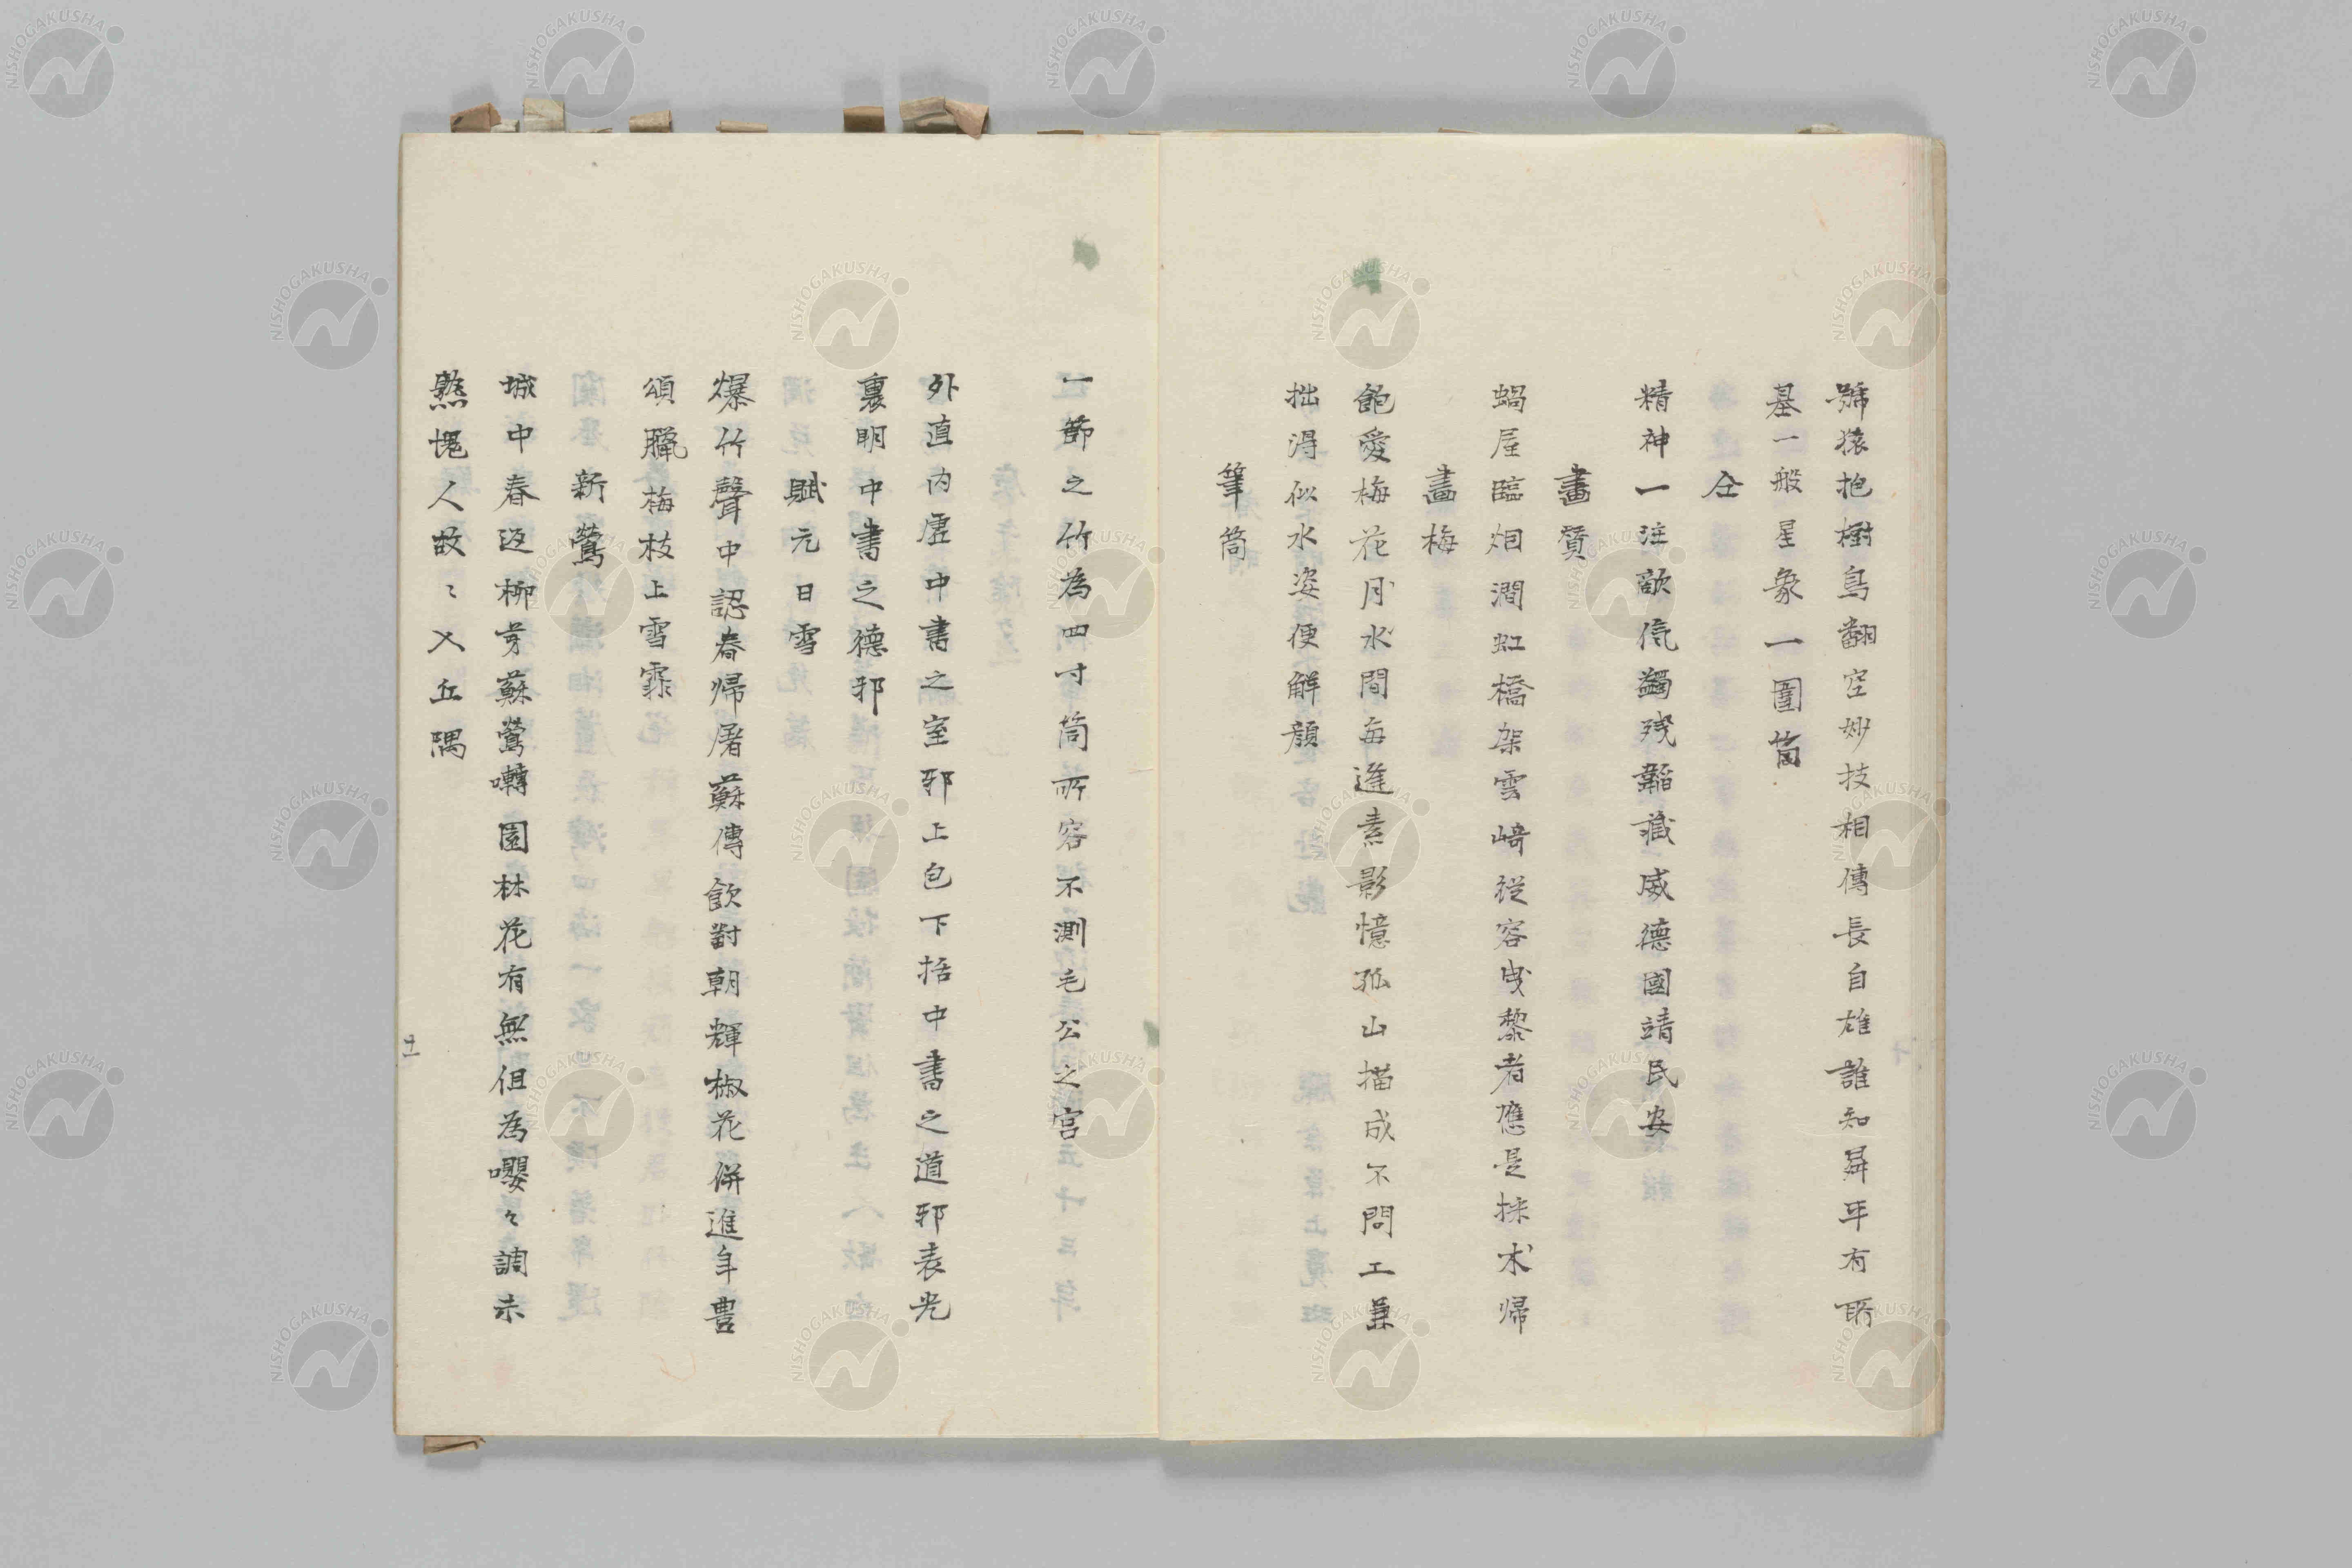 號猿抱樹鳥翻空妙技相傳長自雄誰知羿平有所
基一般星象一圍笛
仝
精神一注敵氛蠲殘韜藏威德國靖民安
畫賛
蝸屋臨烟澗虹橋架雲﨑從容曳藜者應是採朮帰
畫梅
飽愛梅花月水間每進素影憶孤山描成不問工兼
拙淂似水姿便解顏
筆筒
一節之竹為四寸筒所容不測毛公之宮
外直内虛中書之室邪上包下括中書之道邪表光
裏明中書之德邪
賦元日雪
爆竹聲中認春帰屠蘇傳飲對朝輝椒花併進年豊
頌臘梅枝上雪霏〻
新鶯
城中春返柳芽蘇鶯囀園林花有無但為嚶々調未
熟愧人故〻入丘隅
十一
NISHOGAKUSHA